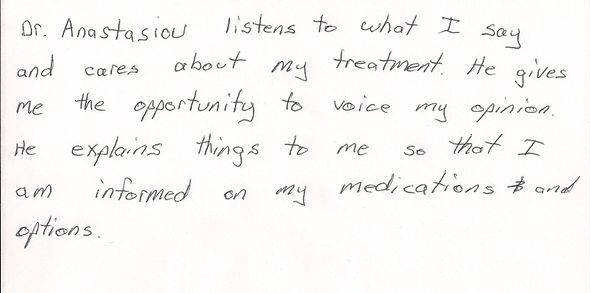 Dr. Anastasiou listens to what I say
and cares about my treatment. He gives
me the opportunity to voice my opinion.
He explains things to me so that I
am informed on my medications and
options.